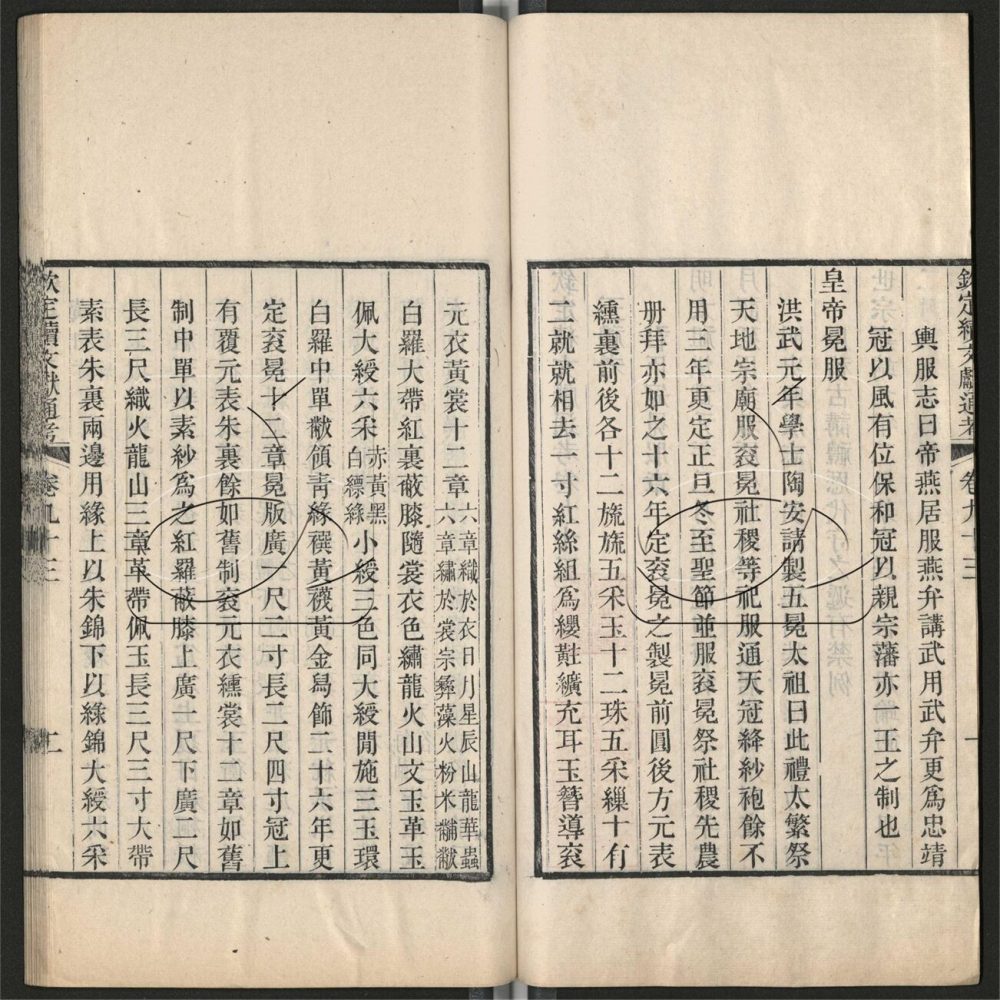 欽定續文獻通考 卷九十三 一
輿服志曰帝燕居服燕弁講武用武弁更為忠靖
冠以風有位保和冠以親宗藩亦一王之制也
皇帝冕服
洪武元年學士陶安請製五冕太祖曰此禮太繁祭
天地宗廟服袞冕社稷等祀服通天冠絳紗袍餘不
用三年更定正旦冬至聖節並服袞冕祭社稷先農
册拜亦如之十六年定袞冕之製冕前圓後方元表
纁裏前後各十二旒旒五采玉十二珠五采繅十有
二就就相去一寸紅絲組為纓黈纊充耳玉簪導袞
元衣黃裳十二章六章織於衣日月星辰山龍華蟲
六章繡於裳宗彝藻火粉米黼黻
白羅大帶紅裏蔽膝隨裳衣色繡龍火山文玉革玉
佩大綬六采赤黃黑
白縹綠小綬三色同大綬閒施三玉環
白羅中單黻領青緣襈黃襪黃金舄飾二十六年更
定袞冕十二章冕版廣一尺二寸長二尺四寸冠上
有覆元表朱裏餘如舊制袞元衣纁裳十二章如舊
制中單以素紗為之紅羅蔽膝上廣一尺下廣二尺
長三尺織火龍山三章革帶佩玉長三尺三寸大帶
素表朱裏兩邊用緣上以朱錦下以綠錦大綬六采
欽定續文獻通考 卷九十三 二